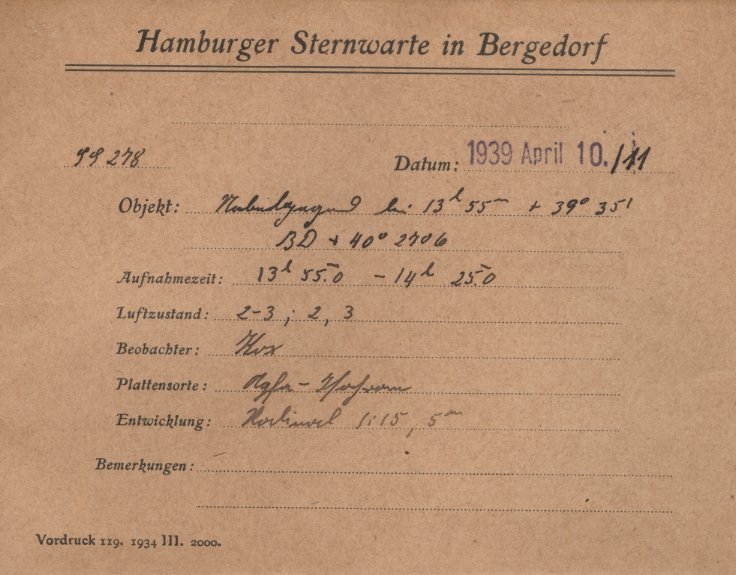 Hamburger Sternwarte in Bergedorf
SS 278
Datum: 1939 April 10./11
Objekt: Nebelgegend bei 13h 55m + 39° 35'
BD + 40° 2706
Aufnahmezeit: 13h 55m.0 - 14h 25m.0
Luftzustand: 2-3 ; 2, 3
Beobachter: Kox
Plattensorte: Agfa-
Entwicklung: Rodinal 1:15, 5m
Bemerkungen:
Vordruck 119. 1934 III. 2000.